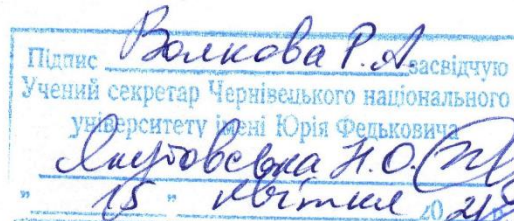 Підпис Волкова Р.А. засвідчую
Учений секретар Чернівецького національного
університету імені Юрія Федьковича
Якутовська Н.О.
" 15 " квітня 20 21 р